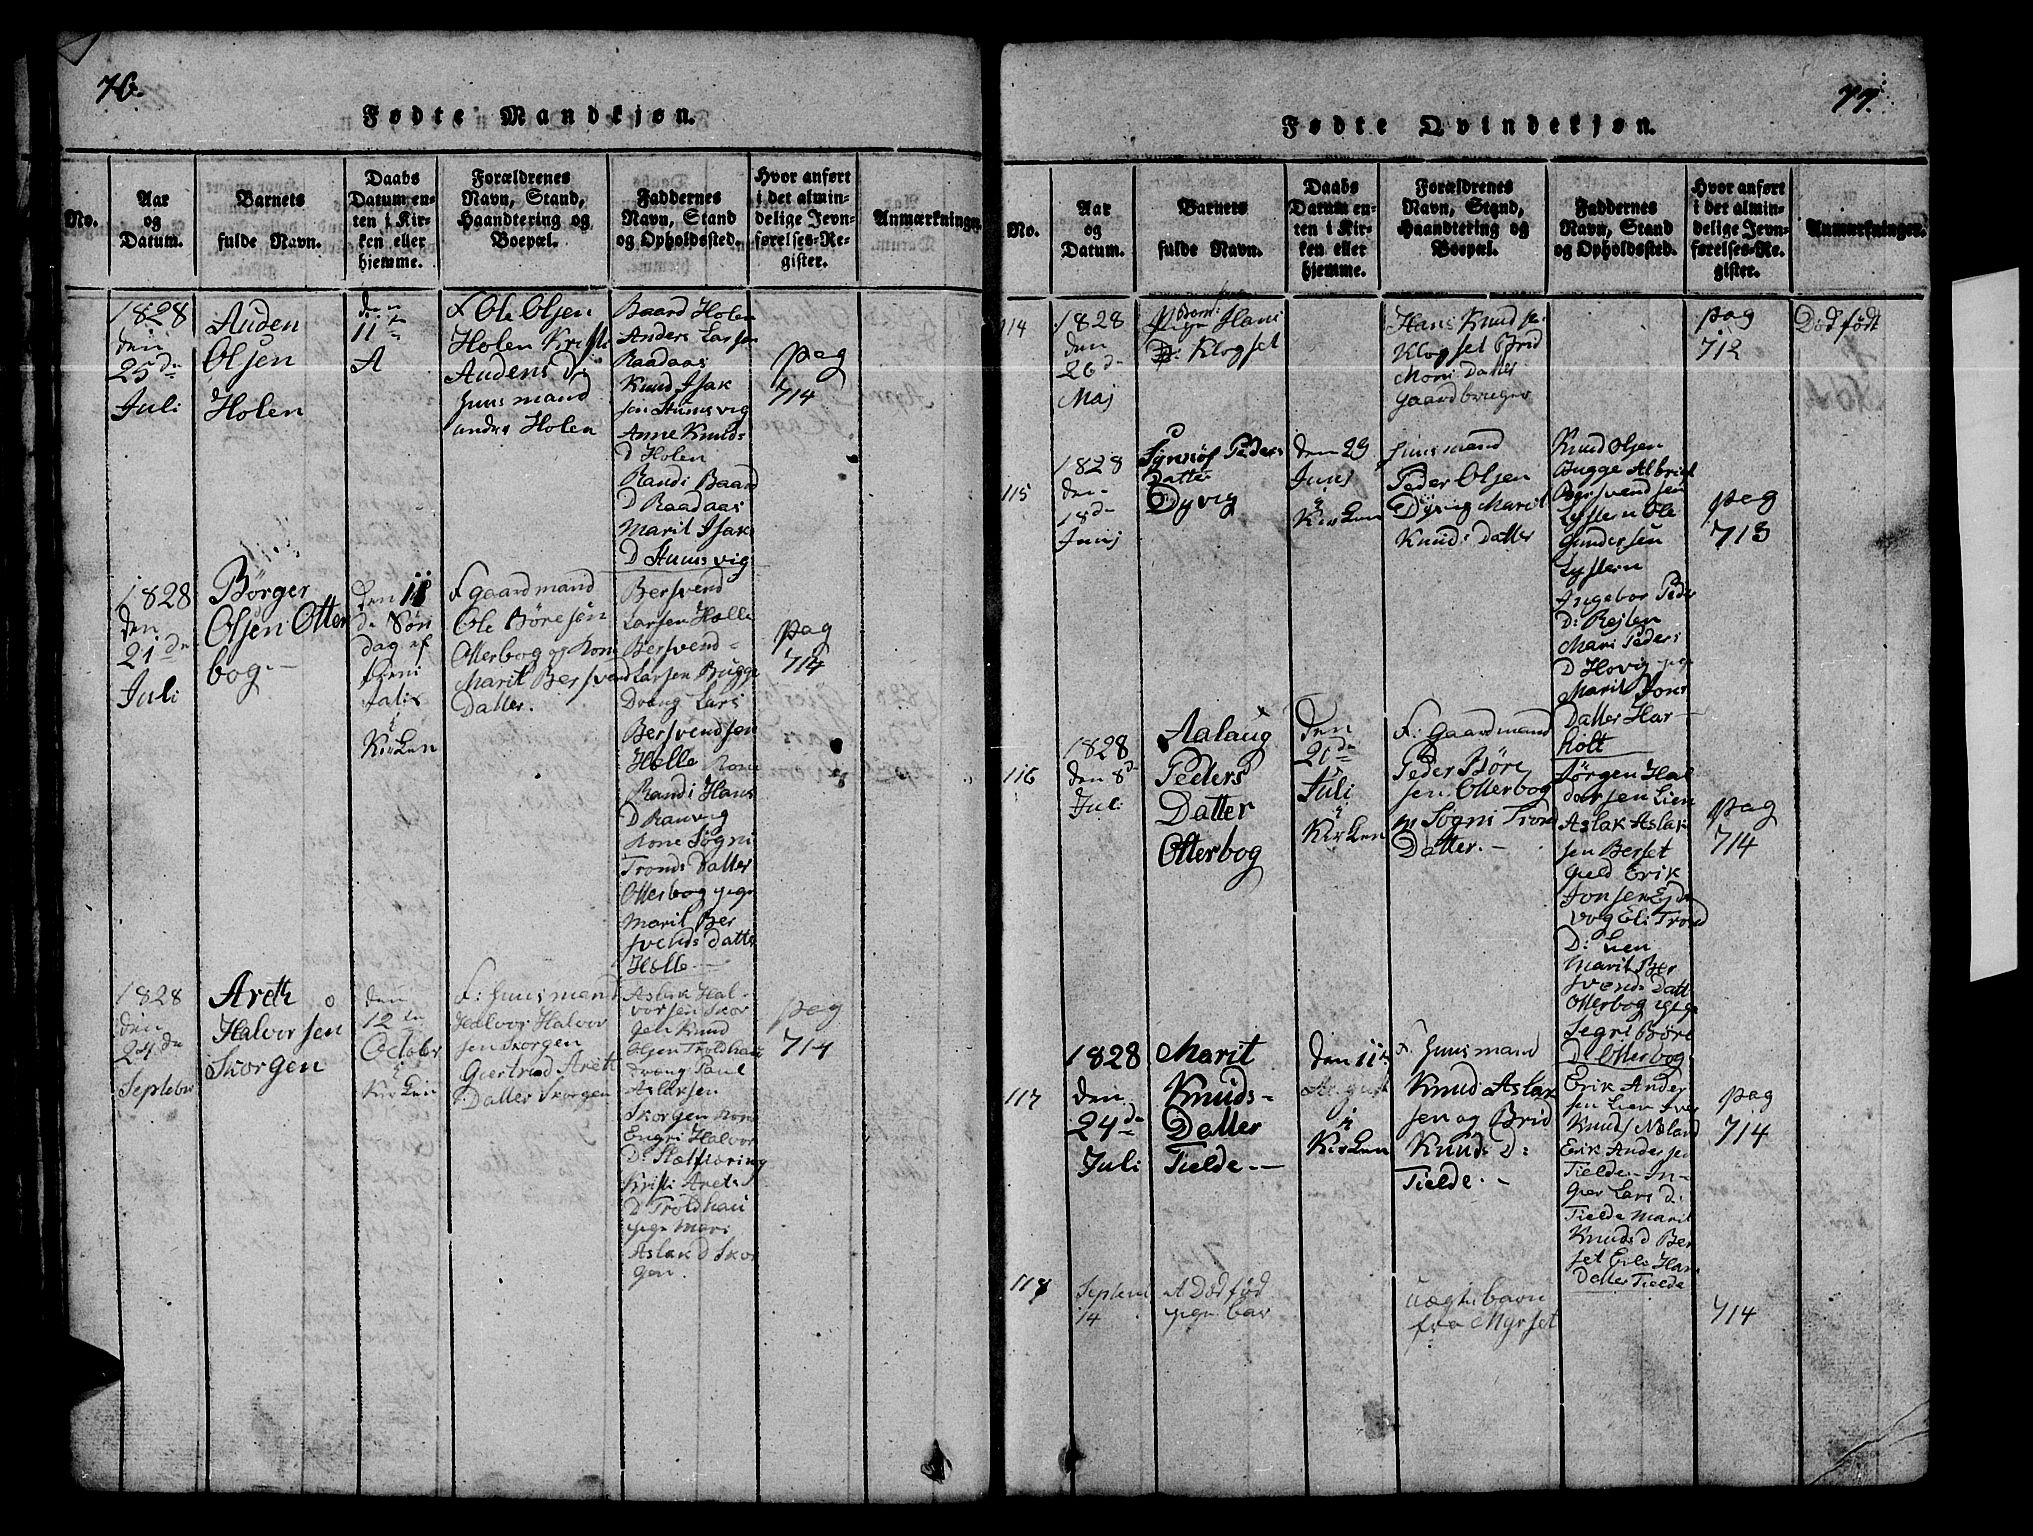 76.
Fødte Mandkjøn.
No.
Aar
og
Datum.
Barnets
fulde Navn.
Daabs
Datum en-
ten i Kir-
ken eller
hjemme.
Forældrenes
Navn, Stand,
Haandtering og
Boepæl.
Faddernes
Navn, Stand
og Opholdssted.
Hvor anført
i det almin-
delige Jevn-
førelses-Re-
gister.
Anmærkninger.
1828
den
25 de
Juli
Auden
Olsen
Holen
den
11te
A
F Ole Olsen
Holen Kristi
Audens D:
Huusmand
Holen
Baard Holen
Anders Larsen
Raadaas
Knud Isak
sen Stumsvig
Anne Knuds
D Holen
Randi Baard
D Raadaas
Marit Isak
D Stumsvig
pag
714
1828
den
21 de
Juli
Børger
Olsen Otter
bog.-
den 11
de Søn
dag ef
Trini
Tatis
i
Kirken
F gaardmand
Ole Børesen
Otterbog og Kone
Marit Bersvend
Datter.
Bersvend
Larsen Hølle
Bersvend
Larsen Bugge
Dreng Lars
Bersvendsen
Hølle Kone
Randi Hans
D Ranvig
Kone Sogni
Tronds Datter
Otterbog pige
Marit Ber
svends Datter
Hølle
pag
714
1828
den
24 de
Septebr
Areth
Halvorsen
Skorgen
den
12 te
Octobr
i
Kirken
F: Huusmand
Halvor Halvor
sen Skorgen
Giertrud Areth
Datter Skorgen
Aslak Hal-
vorsen Skor
gen Knud
Olsen Troldhau
Dreng Paul
Aslaksen
Skorgen Kone
Engri Halvor
D:
Kristi Areths
D Troldhau
pige Mari
Aslak d Skor
gen.
pag
714
77.
Fødte Qvindekjøn.
No.
Aar
og
Datum.
Barnets
fulde Navn.
Daabs
Datum en-
ten i Kir-
ken eller
hjemme.
Forældrenes
Navn, Stand,
Haandtering og
Boepæl.
Faddernes
Navn, Stand
og Opholdssted.
Hvor anført
i det almin-
delige Jevn-
førelses-Re-
gister.
Anmærkninger.
114
1828
den
26 de
Maj
Hans
D: Klogset
Hans Knudsen
Klogset Brid
Mons Datter
Gaardbruger
pag
712
Død født
115
1828
den
18 de
Junj
Synnøf Peders
Datter
Dyvig
den 29
Junj
i
Kirken
Huusmand
Peder Olsen
Dyvig Marit
Knuds Datter
Knud Olsen
Bugge Albrigt
Bersvendsen
Lystern Ole
Gundersen
Lystern
Ingebor Peder
D: Rejten
Mari Peders
D Hovig pige
Marit Jons
Datter Har-
holt
pag
713
116
1828
den 8 de
Juli
Aalaug
Peders
Datter
Otterbog
den
20 de
Juli
i
Kirken
F: Gaardmand
Peder Børe
sen Otterbog
M Sogni Trond
Datter.-
Jørgen Hal
dorsen Lien
Aslak Aslak
sen Berset
Erik
Jonsen
Eli Trond
D: Lien
Marit Ber
svends Datt
Otterbog pige
Segri Børe
D: Otterbog
pag
714
117
1828
den
24 de
Juli
Marit
Knuds-
Datter
Tielde.-
den 11te
August
i
Kirken
F. Huusmand
Knud Aslak
sen og Brid
Knuds D:
Tielde.-
Erik Ander
sen Lien Iver
Knuds Nøland
Erik Andersen
Tielde- In-
ger Lars d:
Tielde Marit
Knuds d Ber
set Erik Hans
Datter Tielde
pag
714
118
Septem
14
A Død fød
pige bar
uægte barn
fra Myrset
714